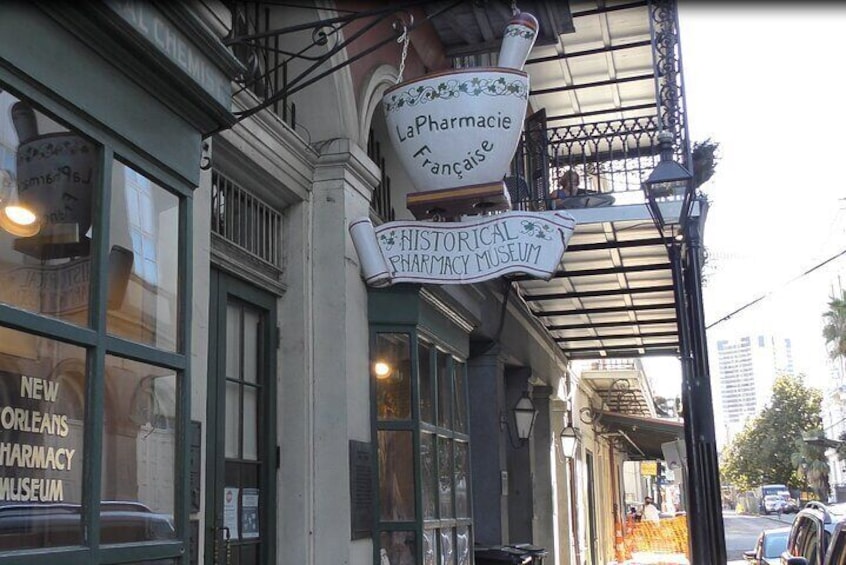 AL CHEMIS
La Pharmacie
Française
HISTORICAL
PHARMACY MUSEUM
NEW
ORLEANS
PHARMACY
MUSEUM